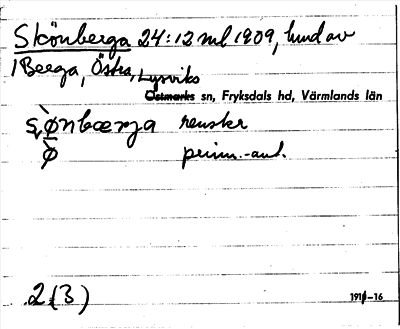 Skönberga 24:12 ml 1909, lund av
1 Berga, Östra, Lysviks
Östmarks sn, Fryksdals hd, Värmlands län
renskr
prim.-ant.
2 (3)
1911-16